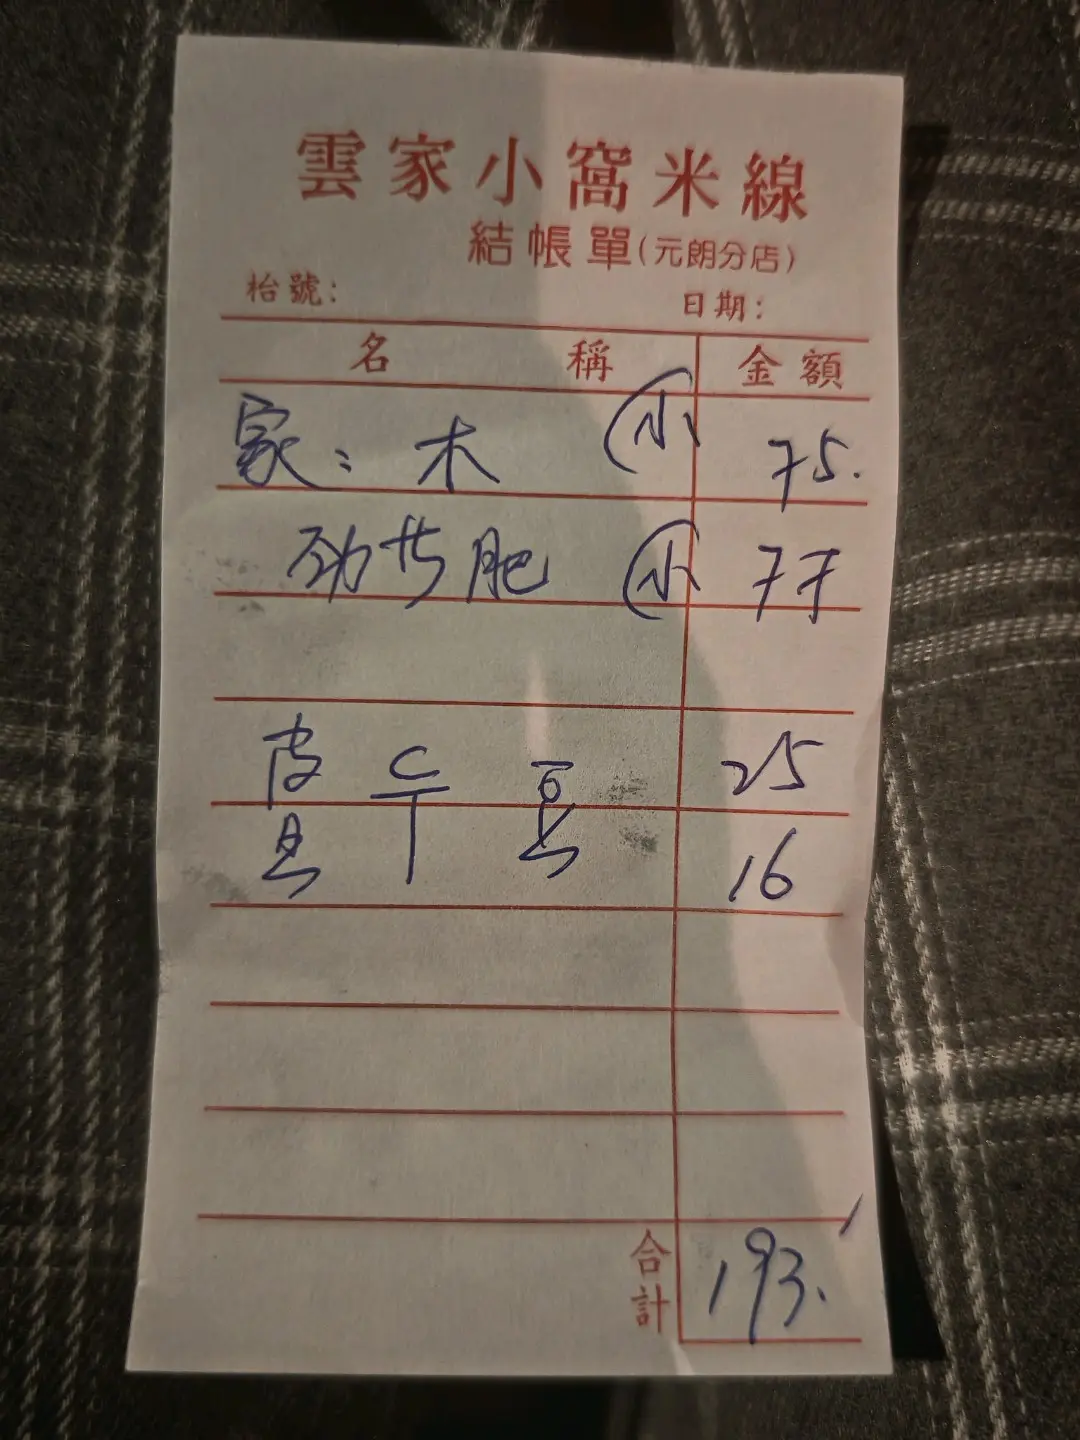 雲家小窩米線
結帳單(元朗分店)
枱號: 日期:
名稱 金額
家: 木 小 75.
劲 肥 小 77
皮 25
16
合計 193.